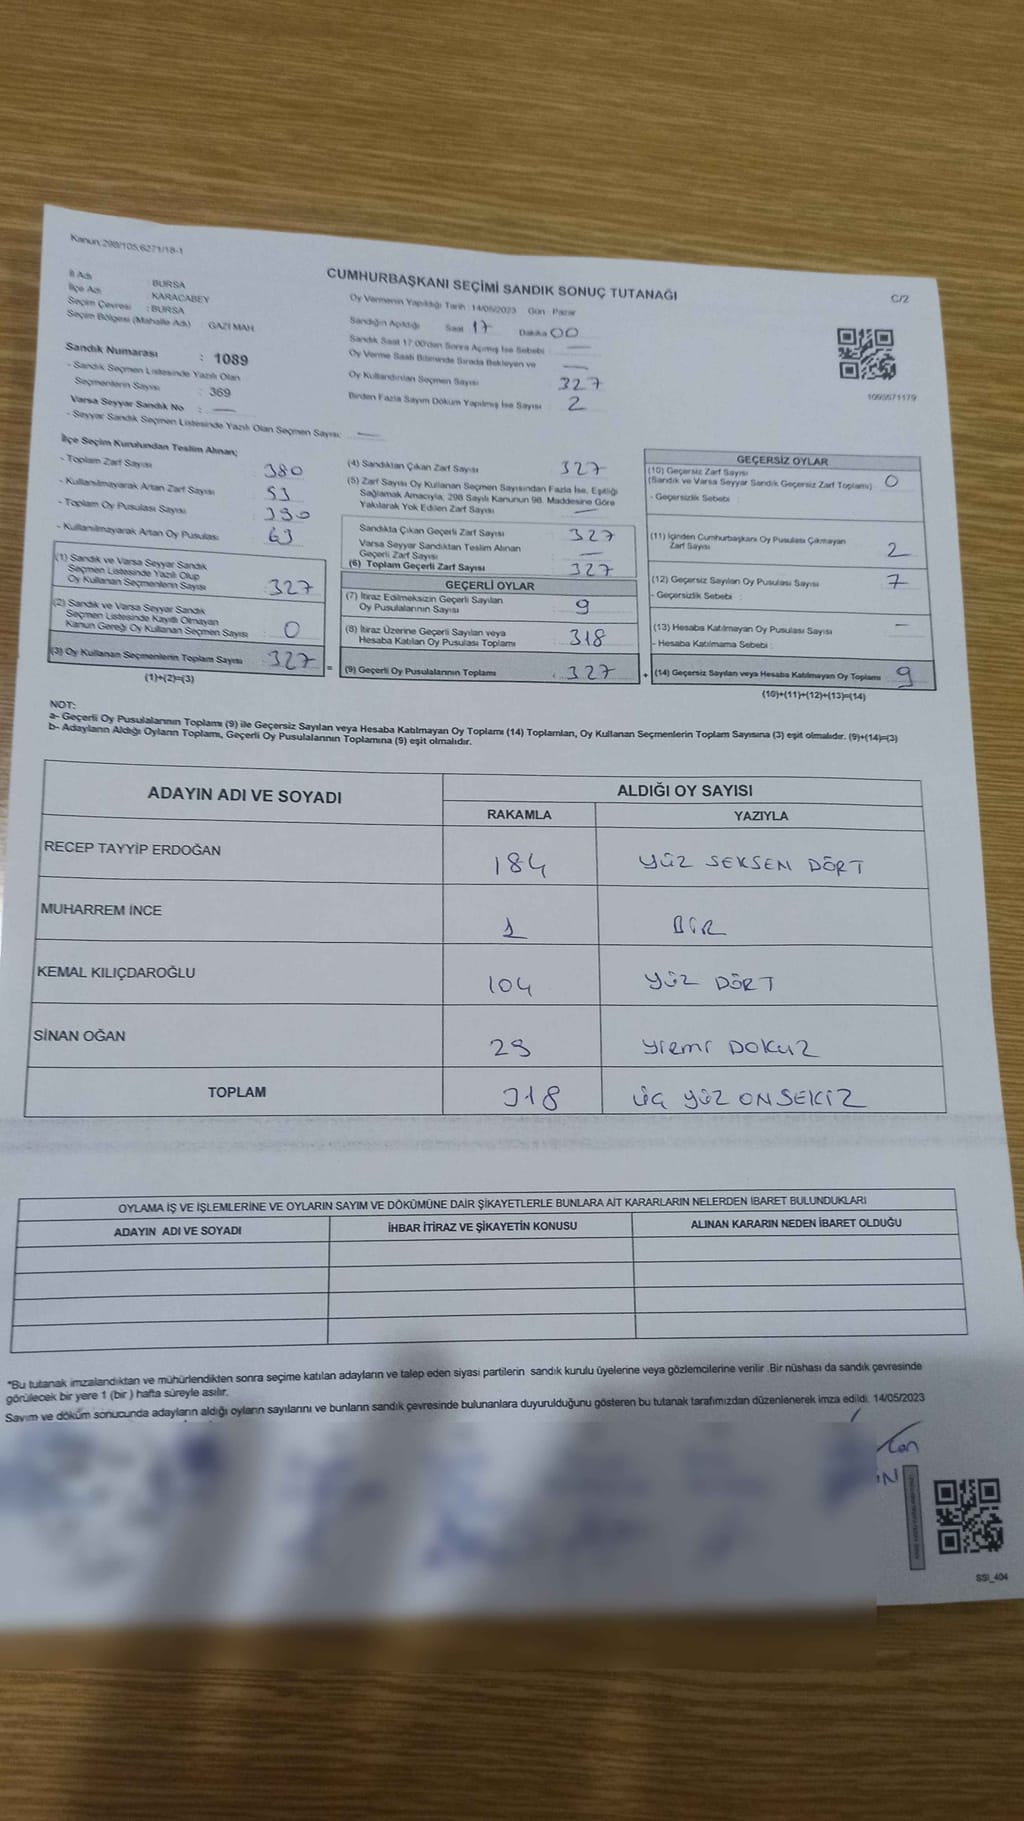 Kanun:298/105,6271/18-1
CUMHURBAŞKANI SEÇİMİ SANDIK SONUÇ TUTANAĞI
C/2
İl Adı : BURSA
İlçe Adı : KARACABEY
Seçim Çevresi : BURSA
Seçim Bölgesi (Mahalle Adı) GAZİ MAH
Sandık Numarası : 1089
- Sandık Seçmen Listesinde Yazılı Olan
Seçmenlerin Sayısı : 369
Varsa Seyyar Sandık No : —
- Seyyar Sandık Seçmen Listesinde Yazılı Olan Seçmen Sayısı: —
Oy Vermenin Yapıldığı Tarih : 14/05/2023 Gün : Pazar
Sandığın Açıldığı Saat 17 Dakika 00
Sandık Saat 17:00'den Sonra Açmış İse Sebebi : —
Oy Verme Saati Bitiminde Sırada Bekleyen ve —
Oy Kullandırılan Seçmen Sayısı 327
Birden Fazla Sayım Döküm Yapılmış İse Sayısı 2
1093571179
İlçe Seçim Kurulundan Teslim Alınan;
- Toplam Zarf Sayısı 380
- Kullanılmayarak Artan Zarf Sayısı 53
- Toplam Oy Pusulası Sayısı 390
- Kullanılmayarak Artan Oy Pusulası 63
(1) Sandık ve Varsa Seyyar Sandık
Seçmen Listesinde Yazılı Olup
Oy Kullanan Seçmenlerin Sayısı 327
(2) Sandık ve Varsa Seyyar Sandık
Seçmen Listesinde Kayıtlı Olmayan
Kanun Gereği Oy Kullanan Seçmen Sayısı 0
(3) Oy Kullanan Seçmenlerin Toplam Sayısı : 327
(1)+(2)=(3)
=
(4) Sandıktan Çıkan Zarf Sayısı 327
(5) Zarf Sayısı Oy Kullanan Seçmen Sayısından Fazla İse, Eşitliği
Sağlamak Amacıyla, 298 Sayılı Kanunun 98. Maddesine Göre
Yakılarak Yok Edilen Zarf Sayısı —
Sandıkta Çıkan Geçerli Zarf Sayısı 327
Varsa Seyyar Sandıktan Teslim Alınan
Geçerli Zarf Sayısı —
(6) Toplam Geçerli Zarf Sayısı 327
GEÇERLİ OYLAR
(7) İtiraz Edilmeksizin Geçerli Sayılan
Oy Pusulalarının Sayısı 9
(8) İtiraz Üzerine Geçerli Sayılan veya
Hesaba Katılan Oy Pusulası Toplamı 318
(9) Geçerli Oy Pusulalarının Toplamı : 327
+
GEÇERSİZ OYLAR
(10) Geçersiz Zarf Sayısı
(Sandık ve Varsa Seyyar Sandık Geçersiz Zarf Toplamı) 0
- Geçersizlik Sebebi :
(11) İçinden Cumhurbaşkanı Oy Pusulası Çıkmayan
Zarf Sayısı 2
(12) Geçersiz Sayılan Oy Pusulası Sayısı 7
- Geçersizlik Sebebi :
(13) Hesaba Katılmayan Oy Pusulası Sayısı —
- Hesaba Katılmama Sebebi :
(14) Geçersiz Sayılan veya Hesaba Katılmayan Oy Toplamı 9
(10)+(11)+(12)+(13)=(14)
NOT:
a- Geçerli Oy Pusulalarının Toplamı (9) ile Geçersiz Sayılan veya Hesaba Katılmayan Oy Toplamı (14) Toplamları, Oy Kullanan Seçmenlerin Toplam Sayısına (3) eşit olmalıdır. (9)+(14)=(3)
b- Adayların Aldığı Oyların Toplamı, Geçerli Oy Pusulalarının Toplamına (9) eşit olmalıdır.
ADAYIN ADI VE SOYADI
ALDIĞI OY SAYISI
RAKAMLA YAZIYLA
RECEP TAYYİP ERDOĞAN 184 YÜZ SEKSEN DÖRT
MUHARREM İNCE 1 BİR
KEMAL KILIÇDAROĞLU 104 YÜZ DÖRT
SİNAN OĞAN 29 YİRMİ DOKUZ
TOPLAM 318 ÜÇ YÜZ ONSEKİZ
OYLAMA İŞ VE İŞLEMLERİNE VE OYLARIN SAYIM VE DÖKÜMÜNE DAİR ŞİKAYETLERLE BUNLARA AİT KARARLARIN NELERDEN İBARET BULUNDUKLARI
ADAYIN ADI VE SOYADI İHBAR İTİRAZ VE ŞİKAYETİN KONUSU ALINAN KARARIN NEDEN İBARET OLDUĞU
*Bu tutanak imzalandıktan ve mühürlendikten sonra seçime katılan adayların ve talep eden siyasi partilerin sandık kurulu üyelerine veya gözlemcilerine verilir .Bir nüshası da sandık çevresinde
görülecek bir yere 1 (bir ) hafta süreyle asılır.
Sayım ve döküm sonucunda adayların aldığı oyların sayılarını ve bunların sandık çevresinde bulunanlara duyurulduğunu gösteren bu tutanak tarafımızdan düzenlenerek imza edildi. 14/05/2023
SSI_404